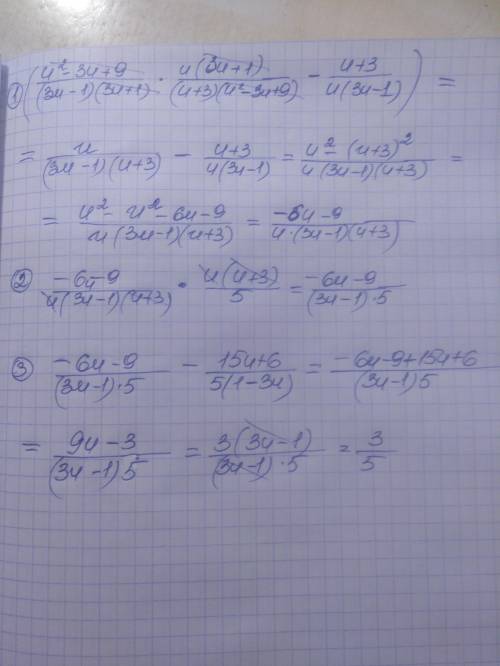 ① ( (u²-3u+9)/((3u-1)(3u+1)) · (u(3u+1))/((u+3)(u²-3u+9)) - (u+3)/(u(3u-1)) ) =
= u/((3u-1)(u+3)) - (u+3)/(u(3u-1)) = (u²-(u+3)²)/(u(3u-1)(u+3)) =
= (u²-u²-6u-9)/(u(3u-1)(u+3)) = (-6u-9)/(u·(3u-1)(u+3))
② (-6u-9)/(u(3u-1)(u+3)) · (u(u+3))/5 = (-6u-9)/((3u-1)·5)
③ (-6u-9)/((3u-1)·5) - (15u+6)/(5(1-3u)) = (-6u-9+15u+6)/((3u-1)5)
= (9u-3)/((3u-1)5) = (3(3u-1))/((3u-1)·5) = 3/5